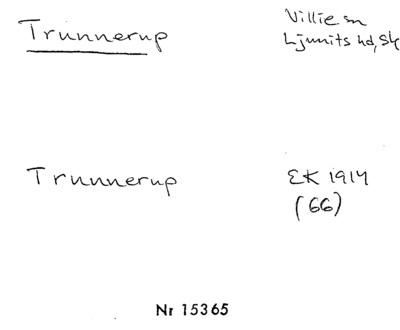 Trunnerup
Villie sn
Ljunits hd, Sk
Trunnerup
EK 1914
(66)
Nr 15365